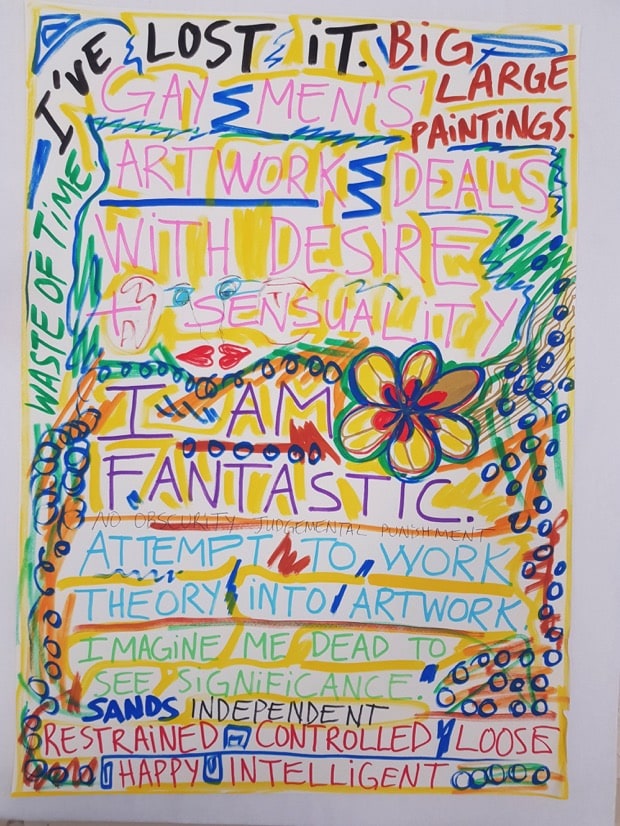 I'VE LOST IT. BIG
LARGE
PAINTINGS.
GAY MEN'S'
ARTWORK DEALS
WITH DESIRE
+ SENSUALITY
WASTE OF TIME
I AM
FANTASTIC.
NO OBSCURITY JUDGEMENTAL PUNISHMENT
ATTEMPT TO WORK
THEORY INTO ARTWORK.
IMAGINE ME DEAD TO
SEE SIGNIFICANCE.
SANDS INDEPENDENT
RESTRAINED CONTROLLED LOOSE
HAPPY INTELLIGENT